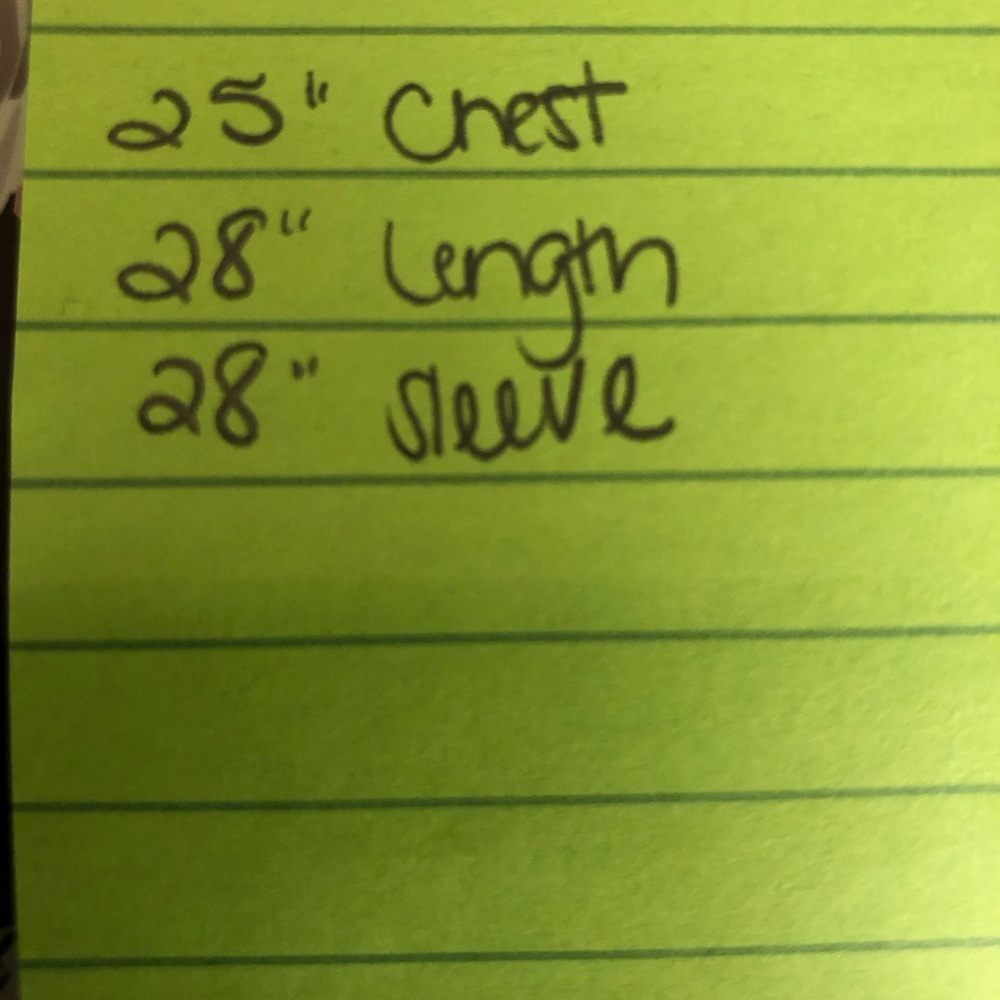 25" Chest
28" Length
28" Sleeve